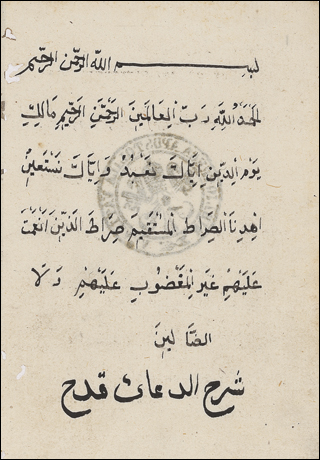 بسم الله الرحمن الرحيم
لحمد لله رب العالمين الرحمن الرحيم مالك
يوم الدين اياك نعبد واياك نستعين
اهدنا الصراط المستقيم صراط الذين انعمت
عليهم غير المغضوب عليهم ولا
الضالين
شرح الدعائ قدح